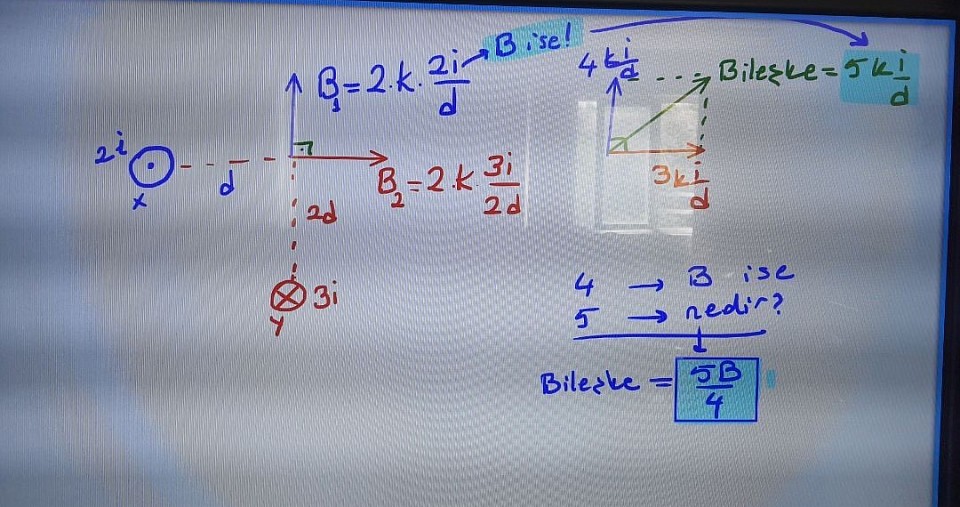 B₁ = 2.k. 2i/d → B ise!
4k i/d
Bileşke = 5k i/d
2i
x
d
B₂ = 2.k 3i/2d
3k i/d
2d
3i
y
4 → B ise
5 → nedir?
Bileşke = 5B/4